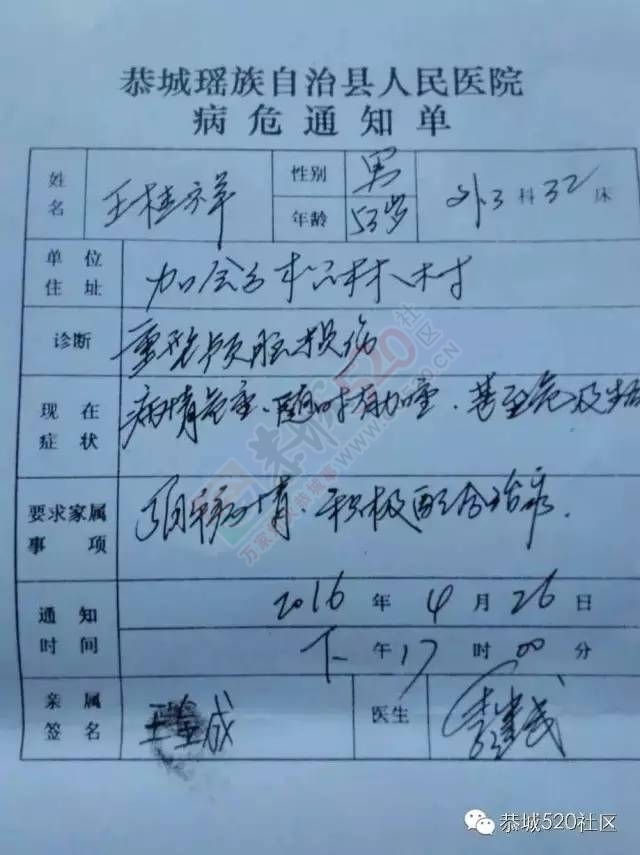 恭城瑶族自治县人民医院
病危通知单
姓名 王桂祥 性别 男 外3科32床
年龄 53岁
单位住址 加会乡
诊断 重型颅脑损伤
现在症状 病情危重、随时有加重、甚至危及生命
要求家属事项 病情、积极配合治疗.
通知时间 2016年4月26日
下午17时00分
亲属签名 成 医生
恭城520社区